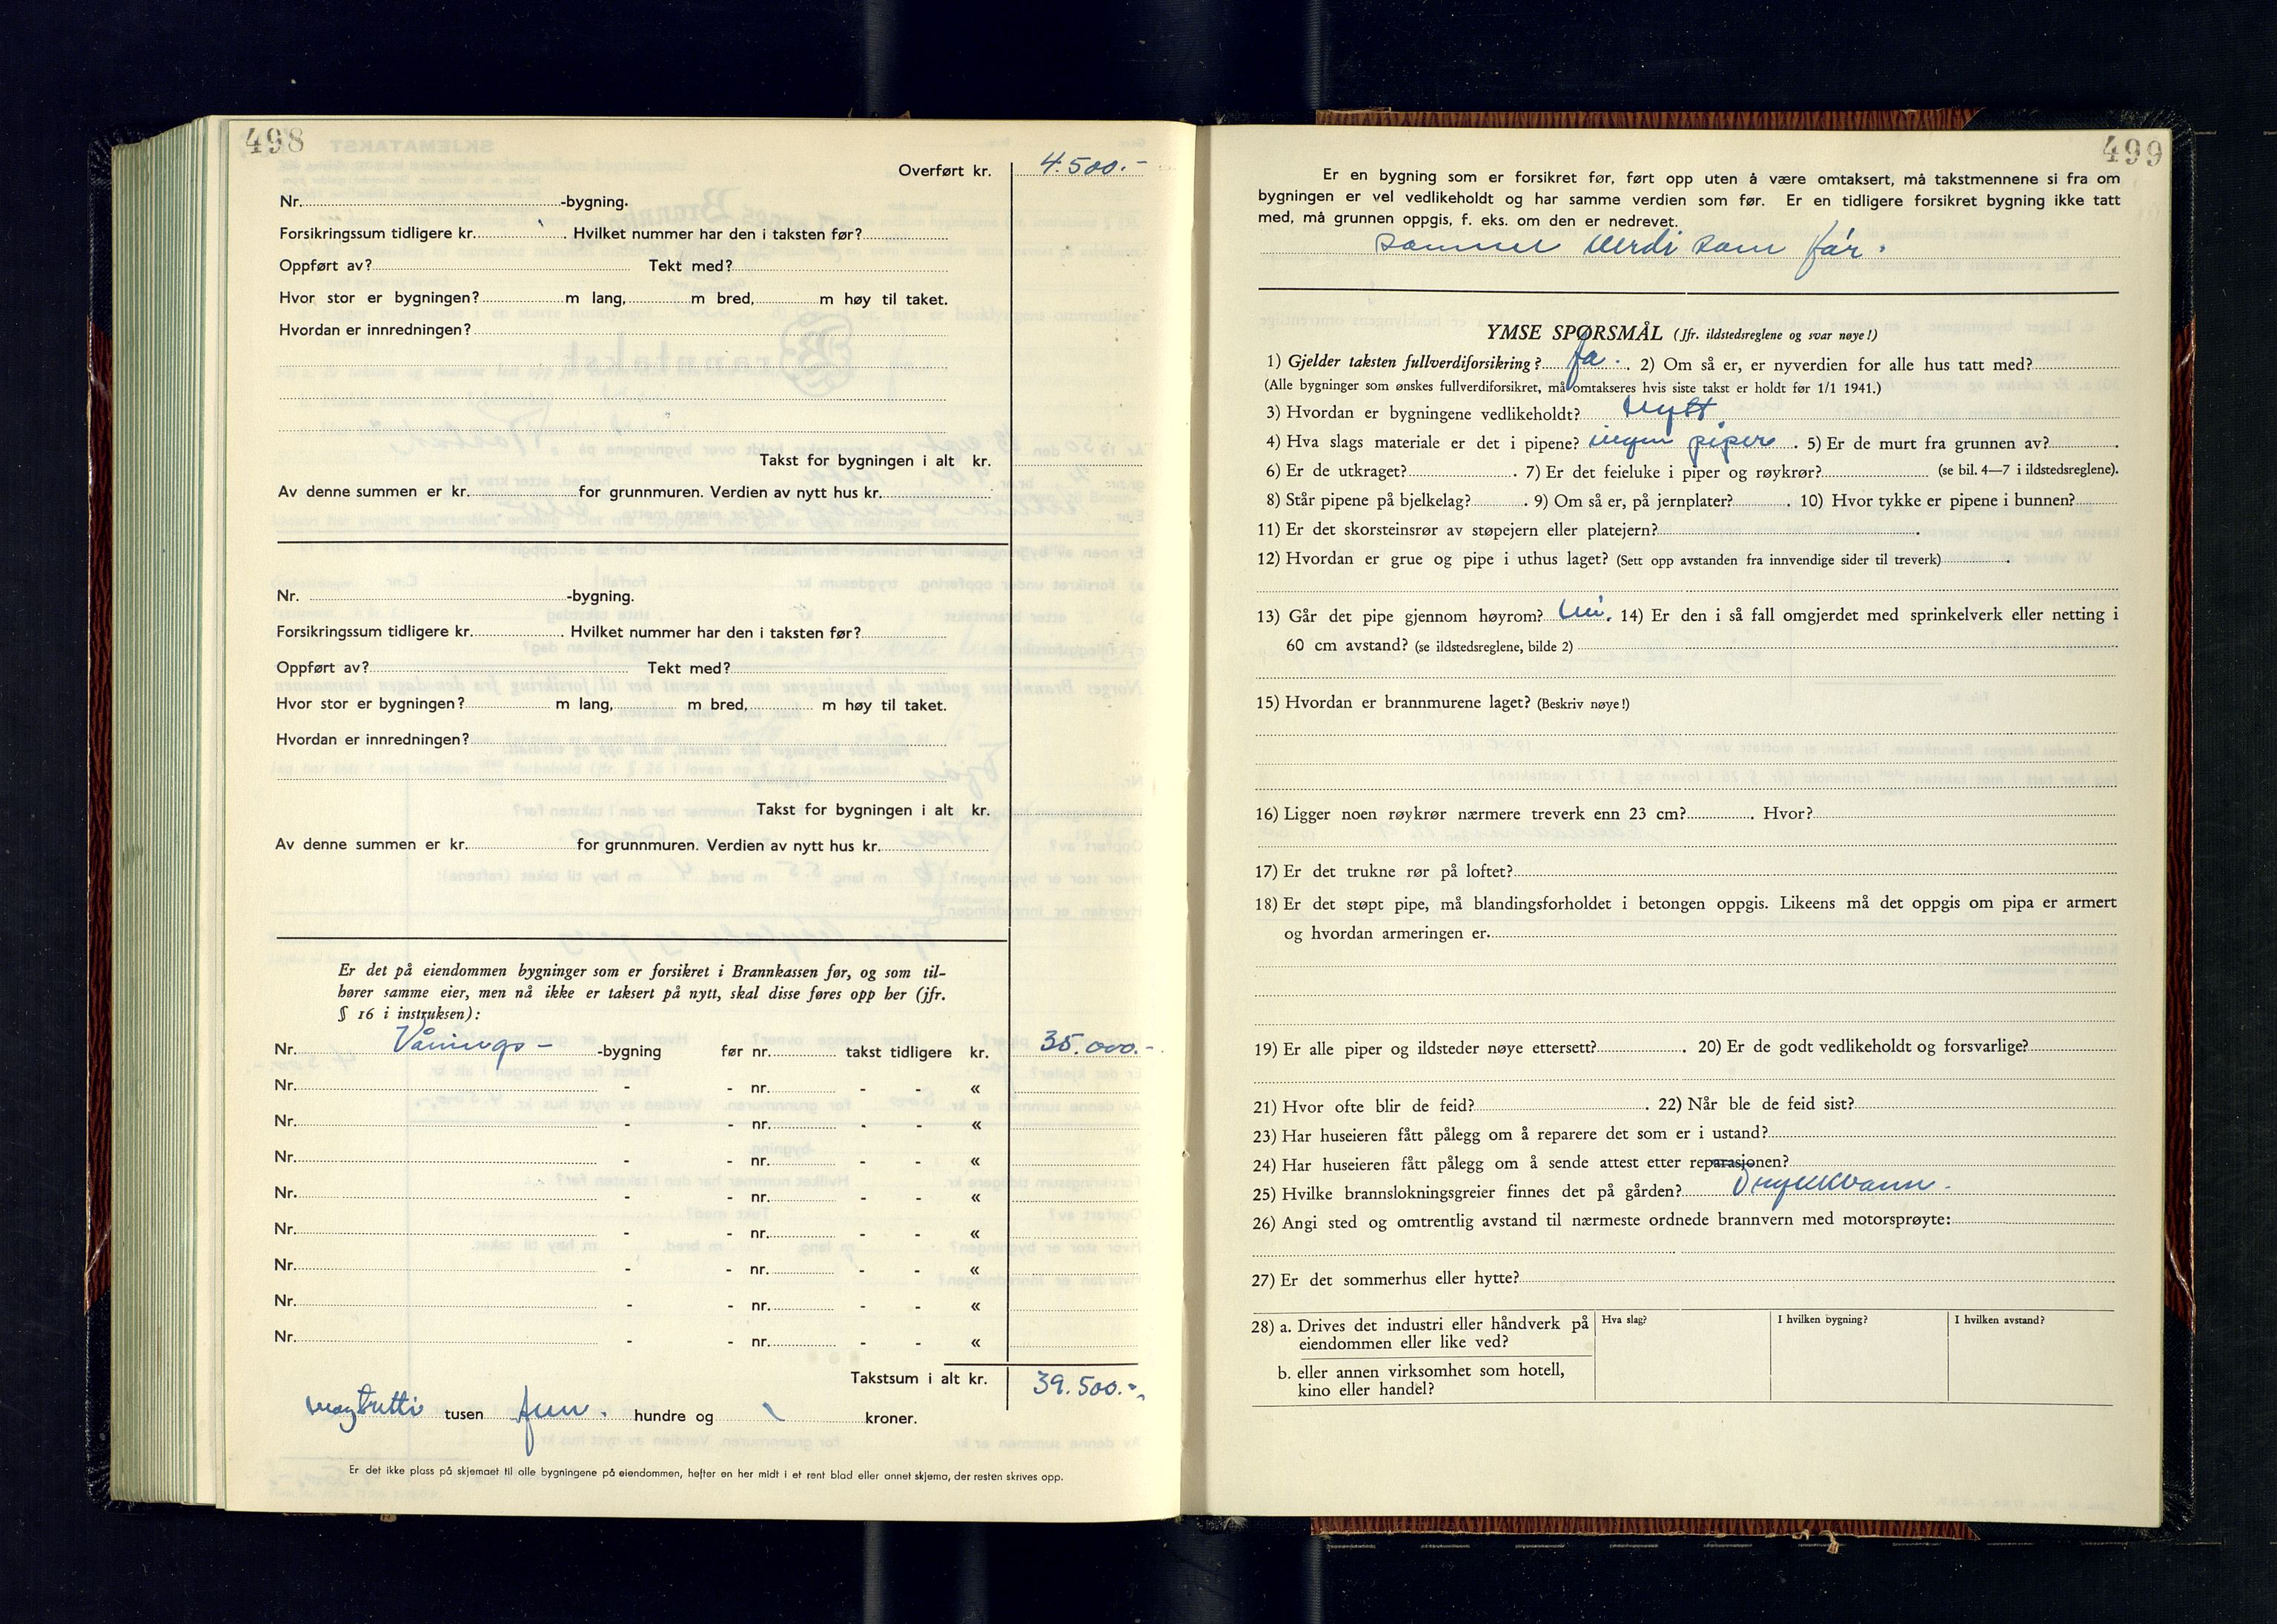 498
Overført kr. 4.500.-
Nr. -bygning.
Forsikringssum tidligere kr. . Hvilket nummer har den i taksten før?
Oppført av? Tekt med?
Hvor stor er bygningen? m lang, m bred, m høy til taket.
Hvordan er innredningen?
Takst for bygningen i alt kr.
Av denne summen er kr. for grunnmuren. Verdien av nytt hus kr.
Nr. -bygning.
Forsikringssum tidligere kr. . Hvilket nummer har den i taksten før?
Oppført av? Tekt med?
Hvor stor er bygningen? m lang, m bred, m høy til taket.
Hvordan er innredningen?
Takst for bygningen i alt kr.
Av denne summen er kr. for grunnmuren. Verdien av nytt hus kr.
Er det på eiendommen bygninger som er forsikret i Brannkassen før, og som til-
hører samme eier, men nå ikke er taksert på nytt, skal disse føres opp her (jfr.
§ 16 i instruksen):
Nr. Vånings- -bygning før nr. takst tidligere kr. 35.000.-
Nr. - - nr. - - «
Nr. - - nr. - - «
Nr. - - nr. - - «
Nr. - - nr. - - «
Nr. - - nr. - - «
Nr. - - nr. - - «
Nr. - - nr. - - «
Nr. - - nr. - - «
Takstsum i alt kr. 39.500.-
tusen fem. hundre og kroner.
Er det ikke plass på skjemaet til alle bygningene på eiendommen, hefter en her midt i et rent blad eller annet skjema, der resten skrives opp.
499
Er en bygning som er forsikret før, ført opp uten å være omtaksert, må takstmennene si fra om
bygningen er vel vedlikeholdt og har samme verdien som før. Er en tidligere forsikret bygning ikke tatt
med, må grunnen oppgis, f. eks. om den er nedrevet.
samme verdi som før.
YMSE SPØRSMÅL (Jfr. ildstedsreglene og svar nøye!)
1) Gjelder taksten fullverdiforsikring? Ja. . 2) Om så er, er nyverdien for alle hus tatt med?
(Alle bygninger som ønskes fullverdiforsikret, må omtakseres hvis siste takst er holdt før 1/1 1941.)
3) Hvordan er bygningene vedlikeholdt? Nytt
4) Hva slags materiale er det i pipene? ingen piper . 5) Er de murt fra grunnen av? .
6) Er de utkraget? . 7) Er det feieluke i piper og røykrør? (se bil. 4—7 i ildstedsreglene).
8) Står pipene på bjelkelag? . 9) Om så er, på jernplater? . 10) Hvor tykke er pipene i bunnen?
11) Er det skorsteinsrør av støpejern eller platejern? .
12) Hvordan er grue og pipe i uthus laget? (Sett opp avstanden fra innvendige sider til treverk) .
13) Går det pipe gjennom høyrom? Nei. 14) Er den i så fall omgjerdet med sprinkelverk eller netting i
60 cm avstand? (se ildstedsreglene, bilde 2)
15) Hvordan er brannmurene laget? (Beskriv nøye!)
16) Ligger noen røykrør nærmere treverk enn 23 cm? . Hvor?
17) Er det trukne rør på loftet?
18) Er det støpt pipe, må blandingsforholdet i betongen oppgis. Likeens må det oppgis om pipa er armert
og hvordan armeringen er.
19) Er alle piper og ildsteder nøye ettersett? . 20) Er de godt vedlikeholdt og forsvarlige?
21) Hvor ofte blir de feid? . 22) Når ble de feid sist?
23) Har huseieren fått pålegg om å reparere det som er i ustand?
24) Har huseieren fått pålegg om å sende attest etter reparasjonen?
25) Hvilke brannslokningsgreier finnes det på gården? Trykkvann.
26) Angi sted og omtrentlig avstand til nærmeste ordnede brannvern med motorsprøyte:
27) Er det sommerhus eller hytte?
28) a. Drives det industri eller håndverk på Hva slag? I hvilken bygning? I hvilken avstand?
eiendommen eller like ved?
b. eller annen virksomhet som hotell,
kino eller handel?